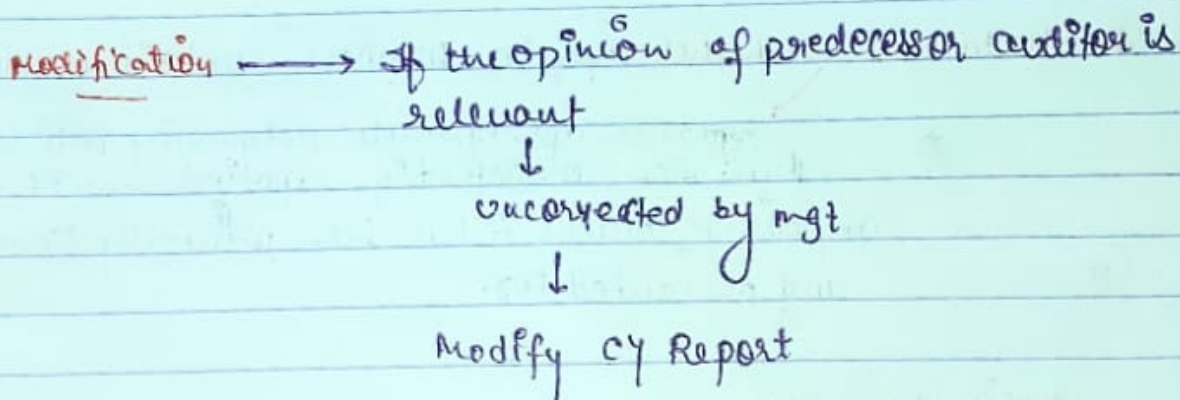 Modification → If the opinion of predecessor auditor is
relevant
↓
uncorrected by mgt
↓
Modify CY Report